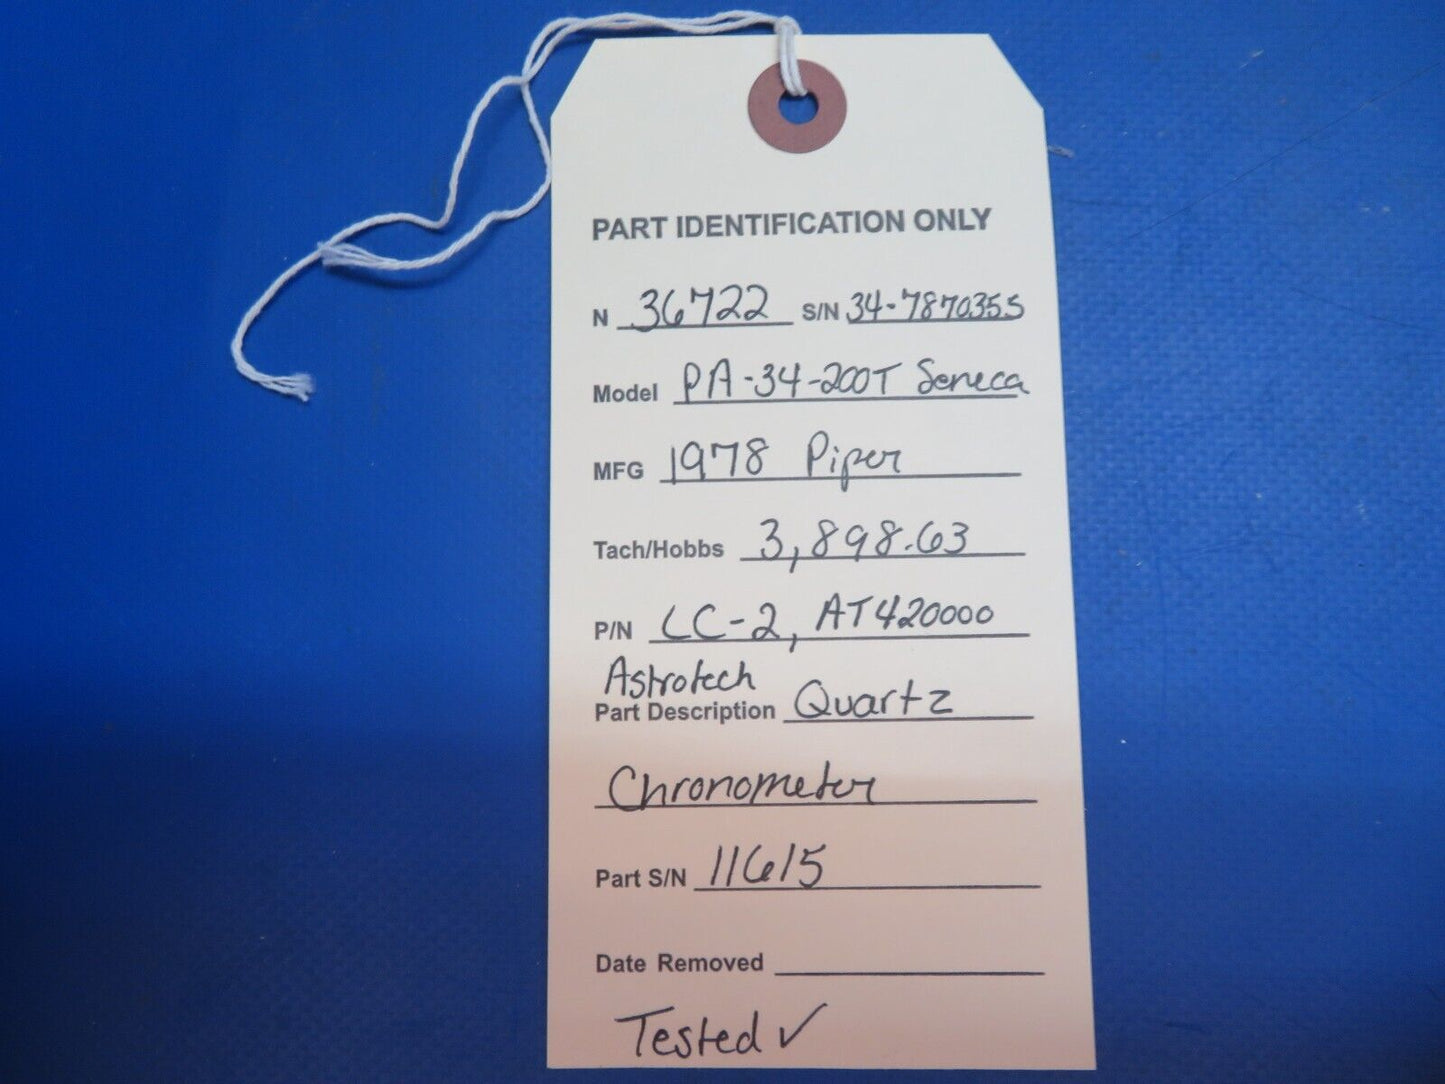 PART IDENTIFICATION ONLY
N 36722 S/N 34-7870355
Model PA-34-200T Seneca
MFG 1978 Piper
Tach/Hobbs 3,898.63
P/N LC-2, AT420000
Astrotech
Part Description Quartz
Chronometer
Part S/N 11615
Date Removed
Tested ✓